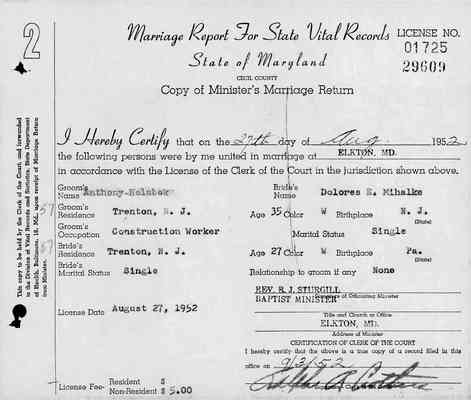 2
Marriage Report For State Vital Records LICENSE NO.
01725
State of Maryland 29609
CECIL COUNTY
Copy of Minister's Marriage Return
I Hereby Certify that on the 27th day of Aug. 1952
the following persons were by me united in marriage at ELKTON, MD.
in accordance with the License of the Clerk of the Court in the jurisdiction shown above.
Groom's Name Anthony Holubek Bride's Name Dolores E. Mihalko
Groom's Residence Trenton, N. J. Age 35 Color W Birthplace N. J.
(State)
Groom's Occupation Construction Worker Marital Status Single
Bride's Residence Trenton, N. J. Age 27 Color W Birthplace Pa.
(State)
Bride's Marital Status Single Relationship to groom if any None
REV. R. J. STURGILL
License Date August 27, 1952 BAPTIST MINISTER of Officiating Minister
Title and Church or Office
ELKTON, MD.
Address of Minister
CERTIFICATION OF CLERK OF THE COURT
I hereby certify that the above is a true copy of a record filed in this
office on 9/3/52
License Fee- Resident $
Non-Resident $ 5.00
This copy to be held by the Clerk of the Court, and forwarded
to the Division of Vital Records and Statistics, State Department
of Health, Baltimore, 18, Md., upon receipt of Marriage Return
from Minister.